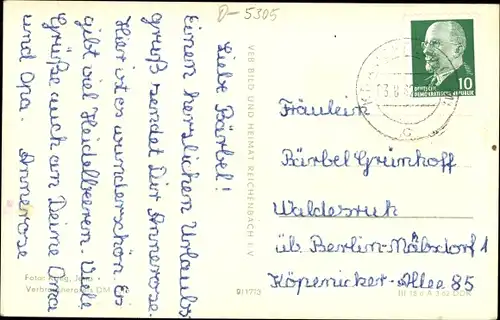 D-5305
Liebe Bärbel!
Einen herzlichen Urlaubs
gruß sendet Dir Annerose.
Hier ist es wunderschön Es
gibt viel Heidelbeeren. Viele
Grüße auch an Deine Oma
und Opa. Annerose
VEB BILD UND HEIMAT REICHENBACH I. V.
10
DEUTSCHE
DEMOKRATISCHE REPUBLIK
Fräulein
Bärbel Grünhoff
Waldesruh
üb. Berlin-Mahlsdorf 1
Köpenicker-Allee 85
Foto:
9/1773
DM